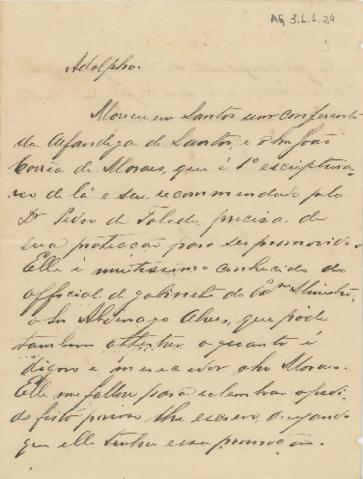 AG 3.L.L.24
Adolpho.
Morreu em Santos um conferente
da Alfandega de Santos, e o Snr João
Corrêa de Moraes, que é 1º escriptura-
rio de lá e seu recommendado pelo
Dr Pedro de Toledo, precisa de
sua protecção para ser promovido.
Elle é muitissimo conhecido do
official de gabinete do Exmo Ministro,
o Snr Alvinago Alves, que pode
tambem attestar o quanto é
digno e merecedor o Snr Moraes.
Elle me fallou para relembrar o pedi-
do feito por isso lhe escrevo, desejando
que elle tenha essa promoção.